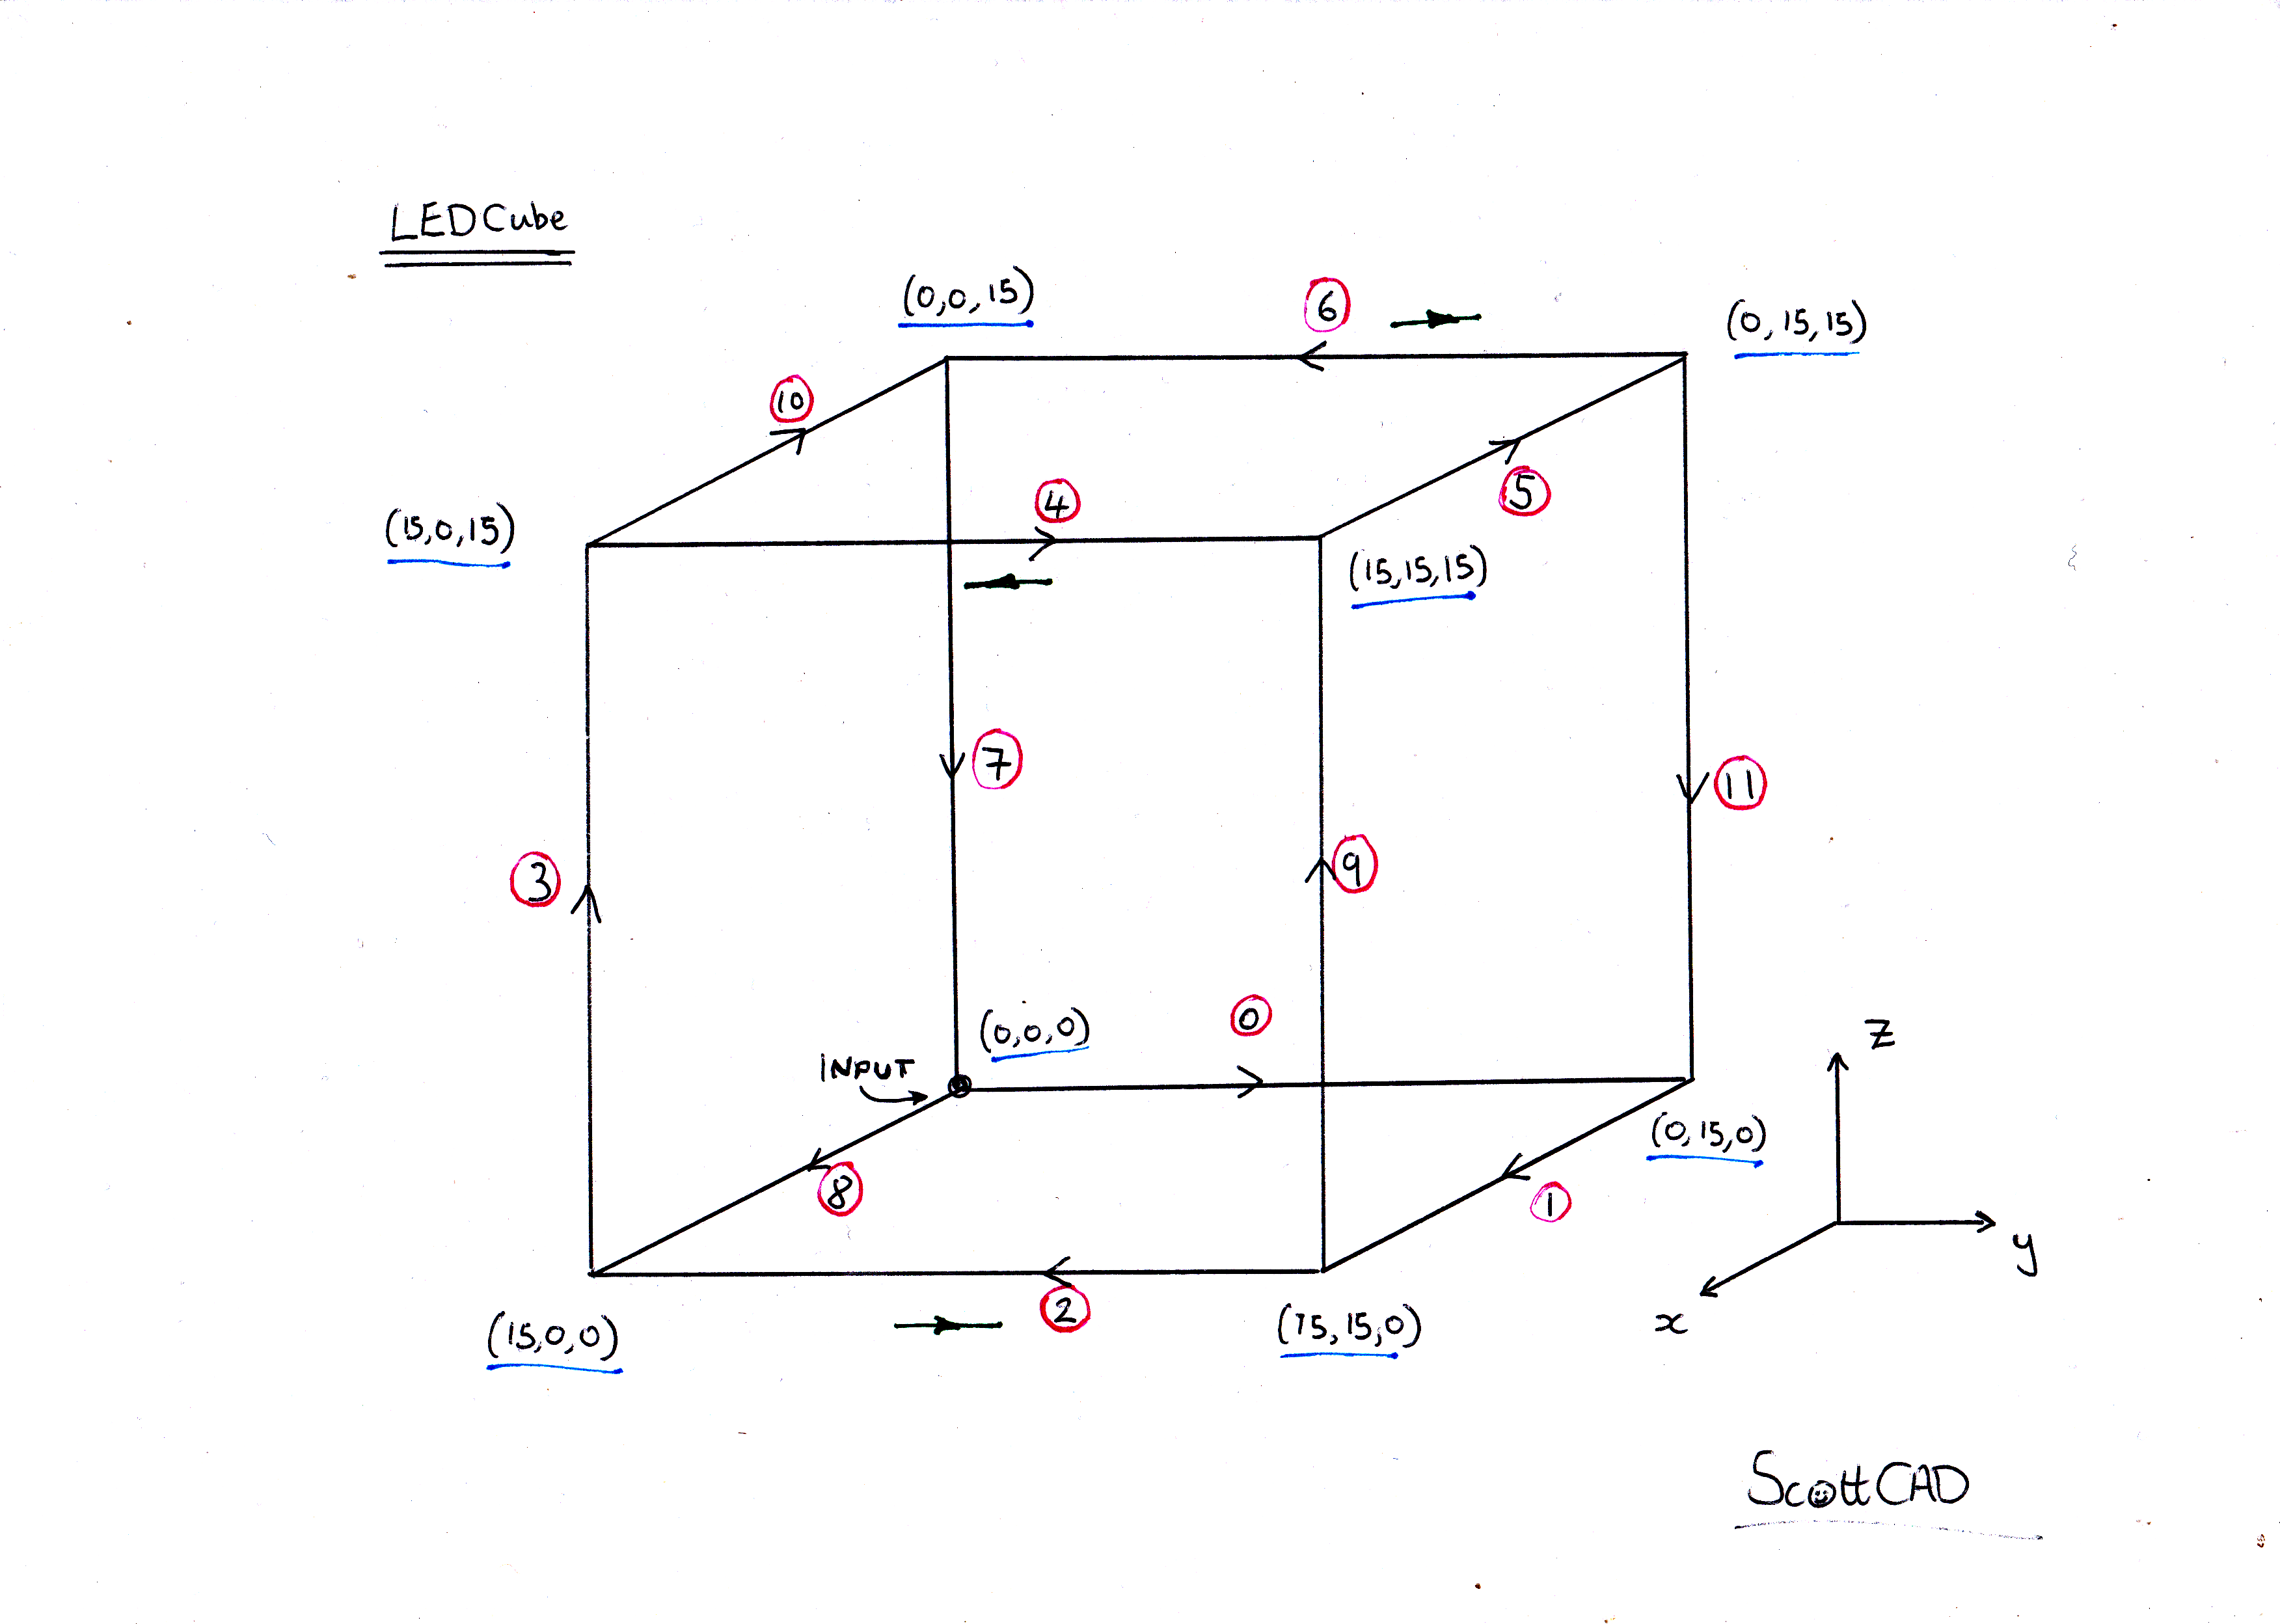 LEDCube
(0,0,15)
6
(0,15,15)
10
4
5
(15,0,15)
(15,15,15)
7
11
3
9
(0,0,0)
0
INPUT
z
(0,15,0)
8
1
y
2
(15,0,0)
(15,15,0)
x
ScottCAD